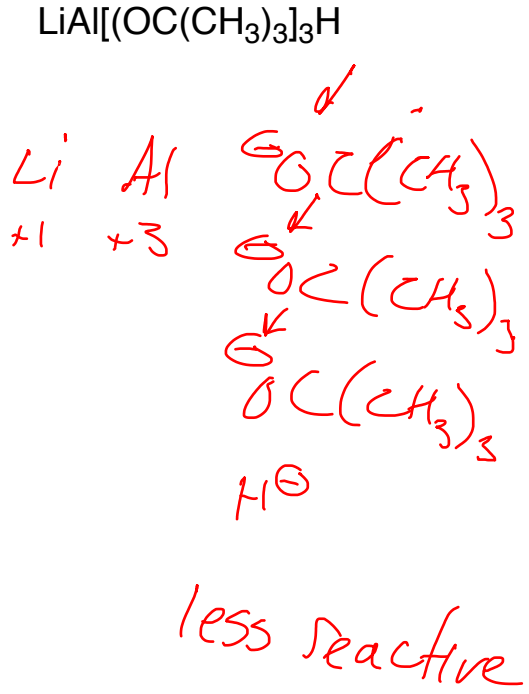 LiAl[(OC(CH₃)₃]₃H
Li Al ⊖OC(CH₃)₃
+1 +3 ⊖OC(CH₃)₃
⊖OC(CH₃)₃
H⊖
less reactive